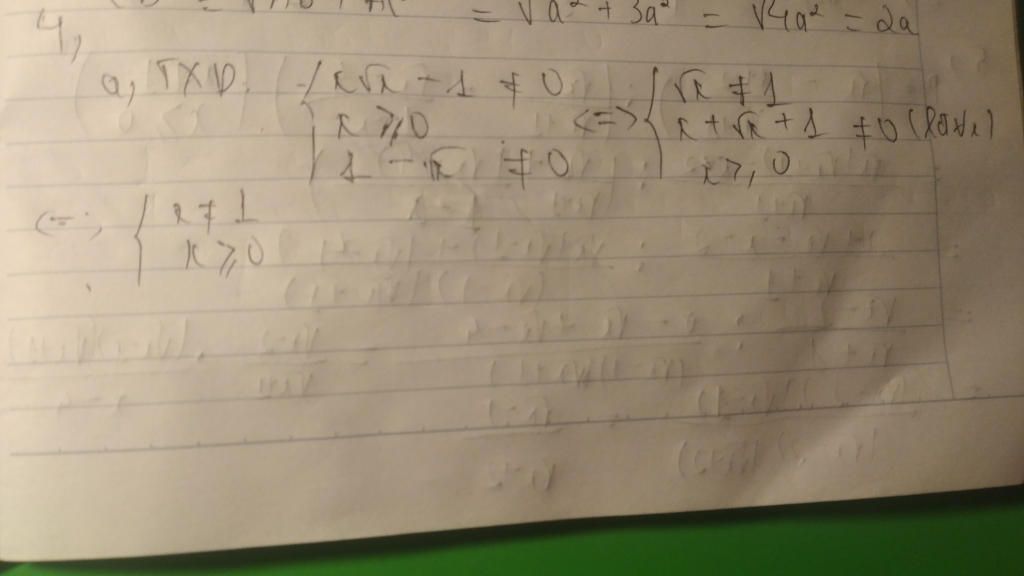 = √a² + 3a² = √4a² = 2a
4,
a, TXĐ { x√x - 1 ≠ 0 <=> { √x ≠ 1
x ⩾ 0 x + √x + 1 ≠ 0 (
1 - √x ≠ 0 x ⩾ 0
<=> { x ≠ 1
x ⩾ 0